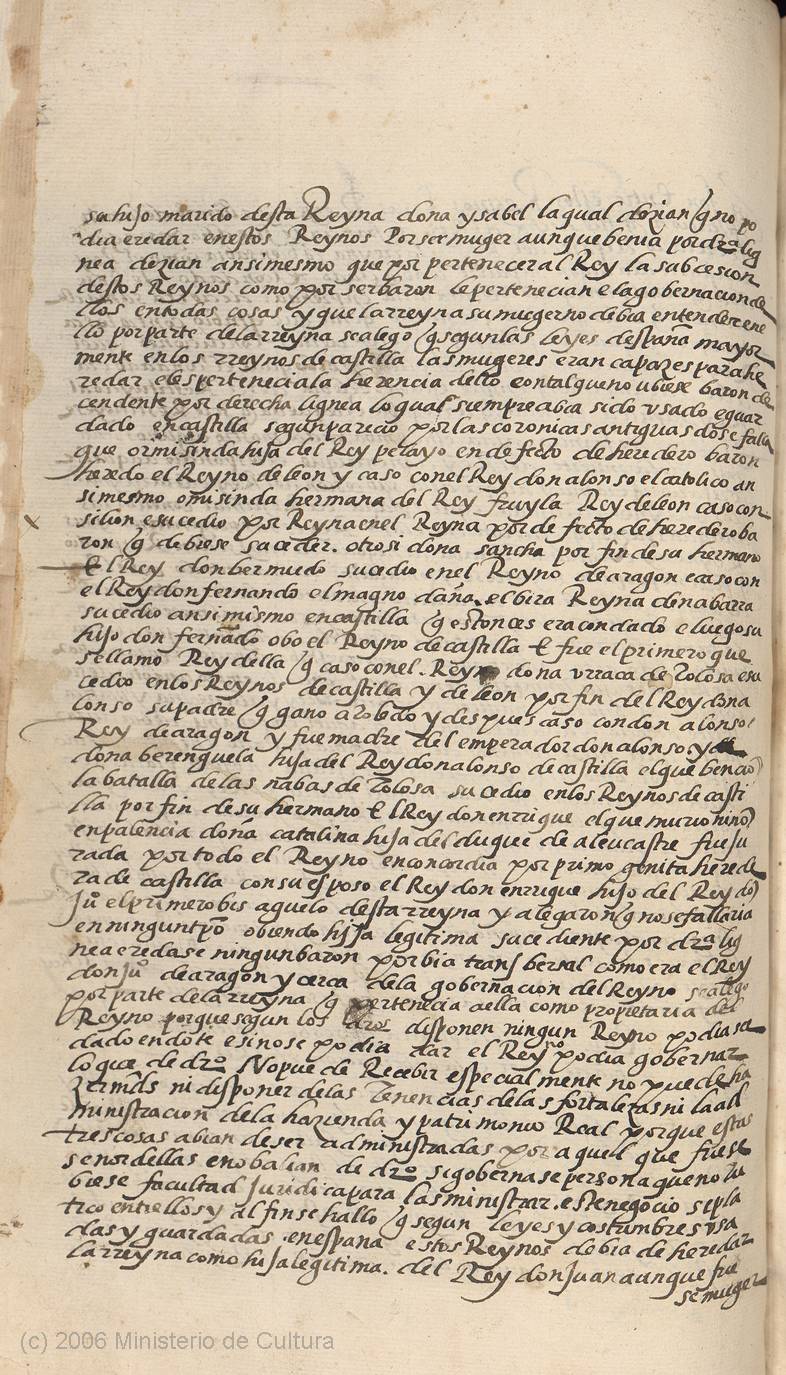 su hijo marido desta Reyna dona ysabel la qual dezian q no po
dia eredar enestos Reynos Porser muger aunque benia por dra lig
nea dezian ansimesmo que por pertenecer al Rey la subcesion
destos Reynos como por ser baron le pertenecian e la gobernacion de
llos entodas cosas y que la rreyna su muger no debia entender ene
llo por parte de la rreyna se alego q segun las leyes despaña mayor
mente en los rreynos de castilla las mugeres eran capazes para he
redar e les pertenecia la herencia dello con tal que no ubiese baron de
cendente por derecha lignea lo qual siempre abia sido usado e guar
dado en castilla segun parecio por las coronicas antiguas do se falla
que ormisinda hija del Rey pelayo en defecto de heredero baron
heredo el Reyno de leon y caso con el Rey don alonso el catolico an
simesmo omisinda hermana del Rey fruyla Rey de leon caso con
silion e sucedio por Reyna enel Reyna por defecto de heredero ba
ron q debiese suceder. otrosi dona sancha por fin de su hermano
El Rey don bermudo sucedio en el Reyno de aragon e caso con
el Rey don fernando el magno daña elbira Reyna de nabarra
sucedio ansimismo en castilla q estonces era condado e luego su
hijo don fernādo obo el Reyno de castilla E fue el primero que
se llamo Rey della q caso con el. Rey dona urraca de Tolosa e su
cedio en los Reynos de castilla y de leon por fin del Rey dona
lonso su padre q gano a toledo y despues caso con don alonso
Rey de aragon y fue madre del emperador don alonso y
dona berenguela hija del Rey don alonso de castilla el que bencio
la batalla de las nabas de Tolosa sucedio en los Reynos de casti
lla por fin de su hermano El Rey don enrrique el que murio niño
en palencia doña catalina hija del duque de alencastre fue ju
rada por todo el Reyno en concordia por primo genita herede
ra de castilla con su esposo el Rey don enrique hijo del Rey do
Juo el primero bis aguelo desta rreyna y alegaron q no se fallaria
en ningun tpo obiendo hija legitima sucediente por dra lig
nea eredase ningun baron por bia transbersal como era el Rey
don juo de aragon y cerca dela gobernacion del Reyno se alego
por parte de la rreyna q pertenecia a ella como propietaria del
Reyno porque segun los dros disponen ningun Reyno podia ser
dado en dote e si no se podia dar el Rey no podia gobernar
lo que de dro No puede Recebir especialmente no puede ha
zer mrds ni disponer de las Tenencias de las fortalezas ni la ad
ministracion de la hazienda y patrimonio Real porque estas
tres cosas abian de ser administradas por aquel que fuese
señor dellas e no balian de dro si gobernase persona que no tu
biese facultad Juridica para las ministrar. este negocio se pla
tico entrellos y al fin se hallo q segun leyes y costumbres usa
das y guardadas .en españa estos Reynos debia de heredar
la rreyna como hija legitima. del Rey don Juan aunque fue
se muger